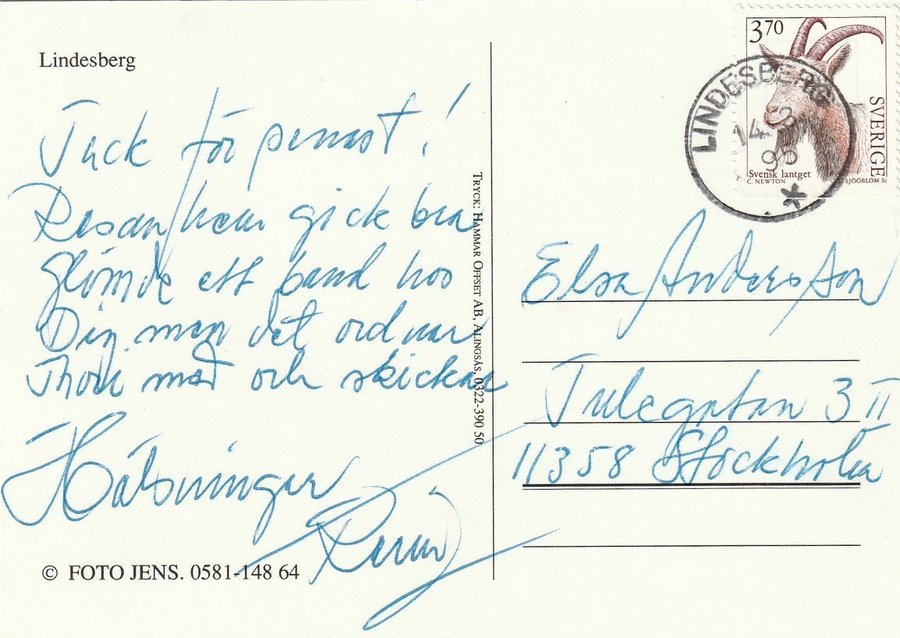 Lindesberg
Tack för penast!
Resan hem gick bra
Glömde ett band hos
Dig, men det ordnar
Thom med och skickar
Hälsningar
© FOTO JENS. 0581-148 64
TRYCK: HAMMAR OFFSET AB, ALINGSÅS, 0322-390 50
3 70
SVERIGE
Svensk lantget
C. NEWTON SJÖÖBLOM SC
LINDESBERG
14
95
Elsa Andersson
Tulegatan 3 II
11358 Stockholm